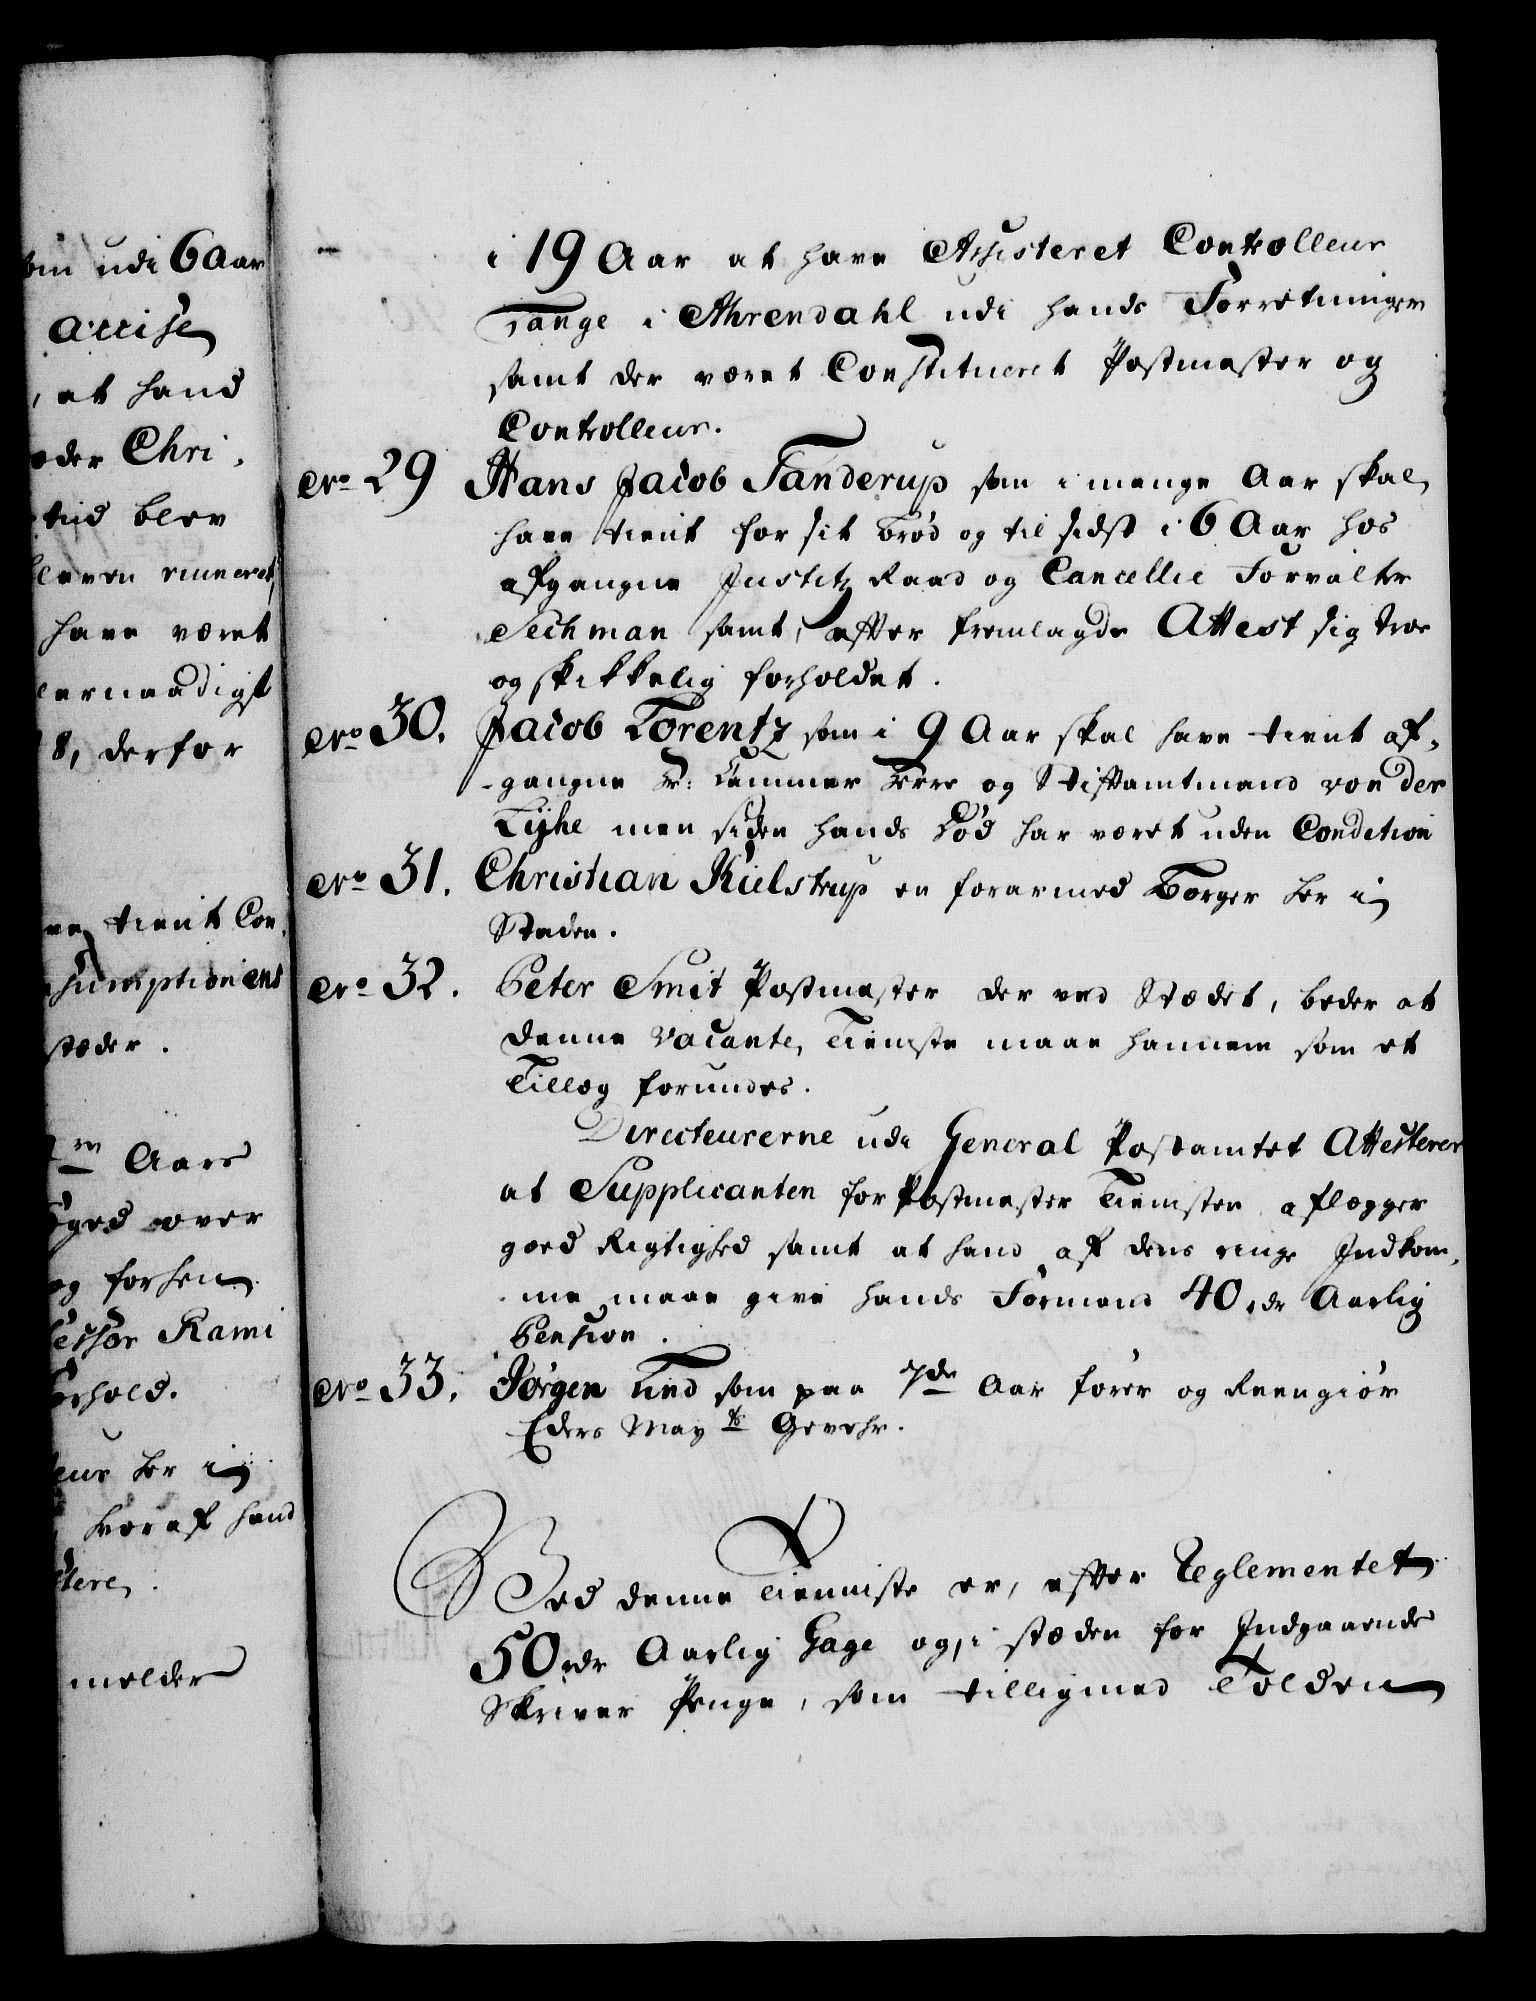 om udi 6 Aar
Accise
, at hand
oder Chri-
tid blev
bleven rumeret,
have været
lernaadigst
8, derfor
tient Con-
sumptionens
stæder.
Aars
oged over
og forhen
essor Rami
orhold.
eur her i
hvoraf hand
stere.
melder
i 19 Aar at have Assisteret Controlleur
Tange i Ahrendahl udi hands Forretninger
samt der været Constitueret Postmester og
Controlleur.
No 29 Hans Jacob Tanderup som i mange Aar skal
have tient for sit Brød og til sidst i 6 Aar hos
afgangne Justitz Raad og Cancellie Forvalter
Sechman samt, efter fremlagde Attest sig troe
og skikkelig forholdet.
No 30. Jacob Lorentz som i 9 Aar skal have tient af-
gangne Hr: Cammer Herre og Stiftamtmand von der
Lyhe men siden hands Död har været uden Condition
No 31. Christian Kielstrup en forarmed Borger her i
Staden.
No 32. Peter Smit Postmester der ved Stædet, beder at
denne vacante Tieniste maae hannem som et
Tillæg forundes.
Directeurerne udi General Postamtet Attesterer
at Supplicanten for Postmester Tienisten aflægger
goed Rigtighed samt at hand af dens ringe Indkom-
me maae give hands Formand 40 rdr Aarlig
Pension.
No 33. Jørgen Lind som paa 7de Aar fører og Reengiør
Eders Mayts Gevehr.
Ved denne Tienniste er, efter Reglementet
50 rdr Aarlig Gage og, i stæden for Indgaaende
Skriver Penge, som tilligemed Tolden